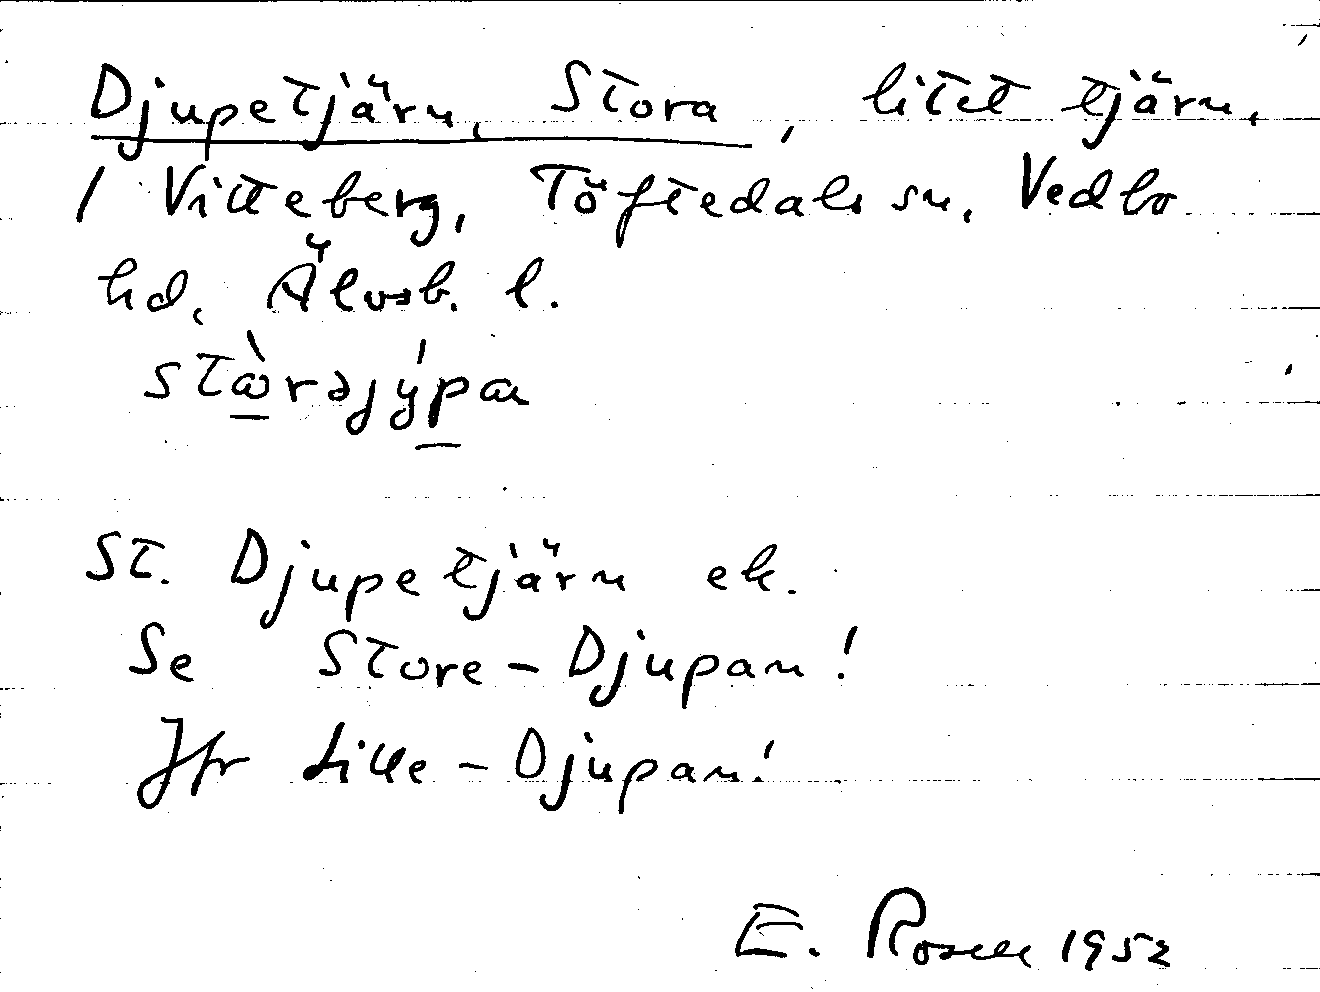 Djupetjärn, Stora, litet tjärn,
/ Vitteberg, Töftedals sn, Vedbo
hd, Älvsb. l.
stɷ̀rəjýpa
St. Djupetjärn ek.
Se Store-Djupan!
Jfr Lille-Djupan!
E. Rosell 1952